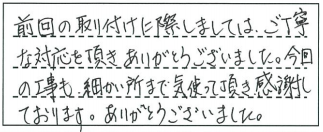 前回の取り付けに際しましては、ご丁寧
な対応を頂きありがとうございました。今回
の工事も細かい所まで気使って頂き感謝し
ております。ありがとうございました。